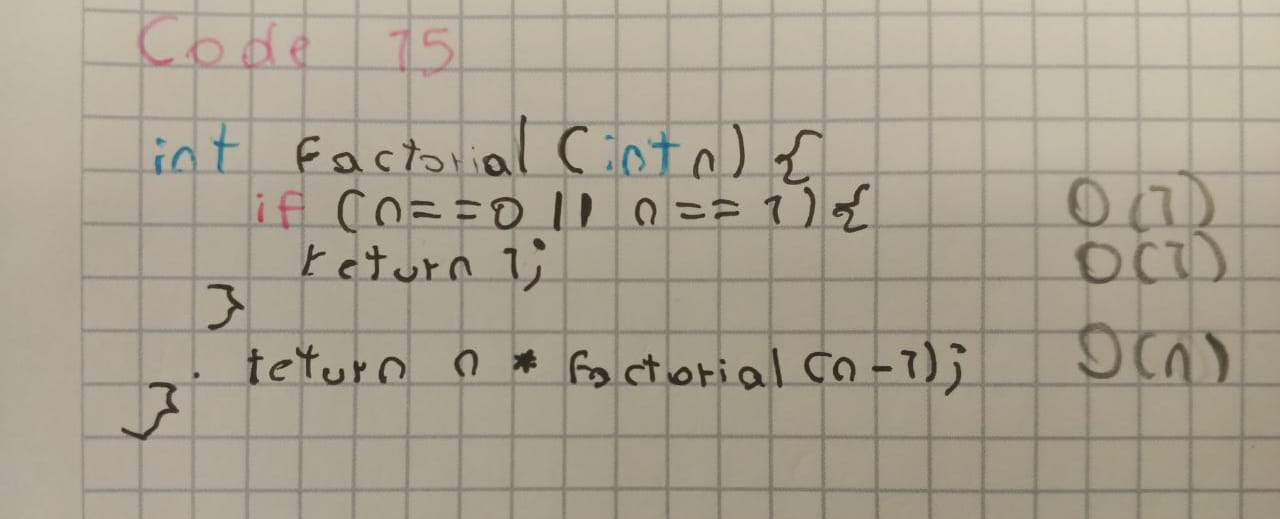 Code 15
int Factorial (int n) {
if (n==0 || n == 1) { O(1)
return 1; O(1)
}
return n * Factorial (n-1); O(n)
}